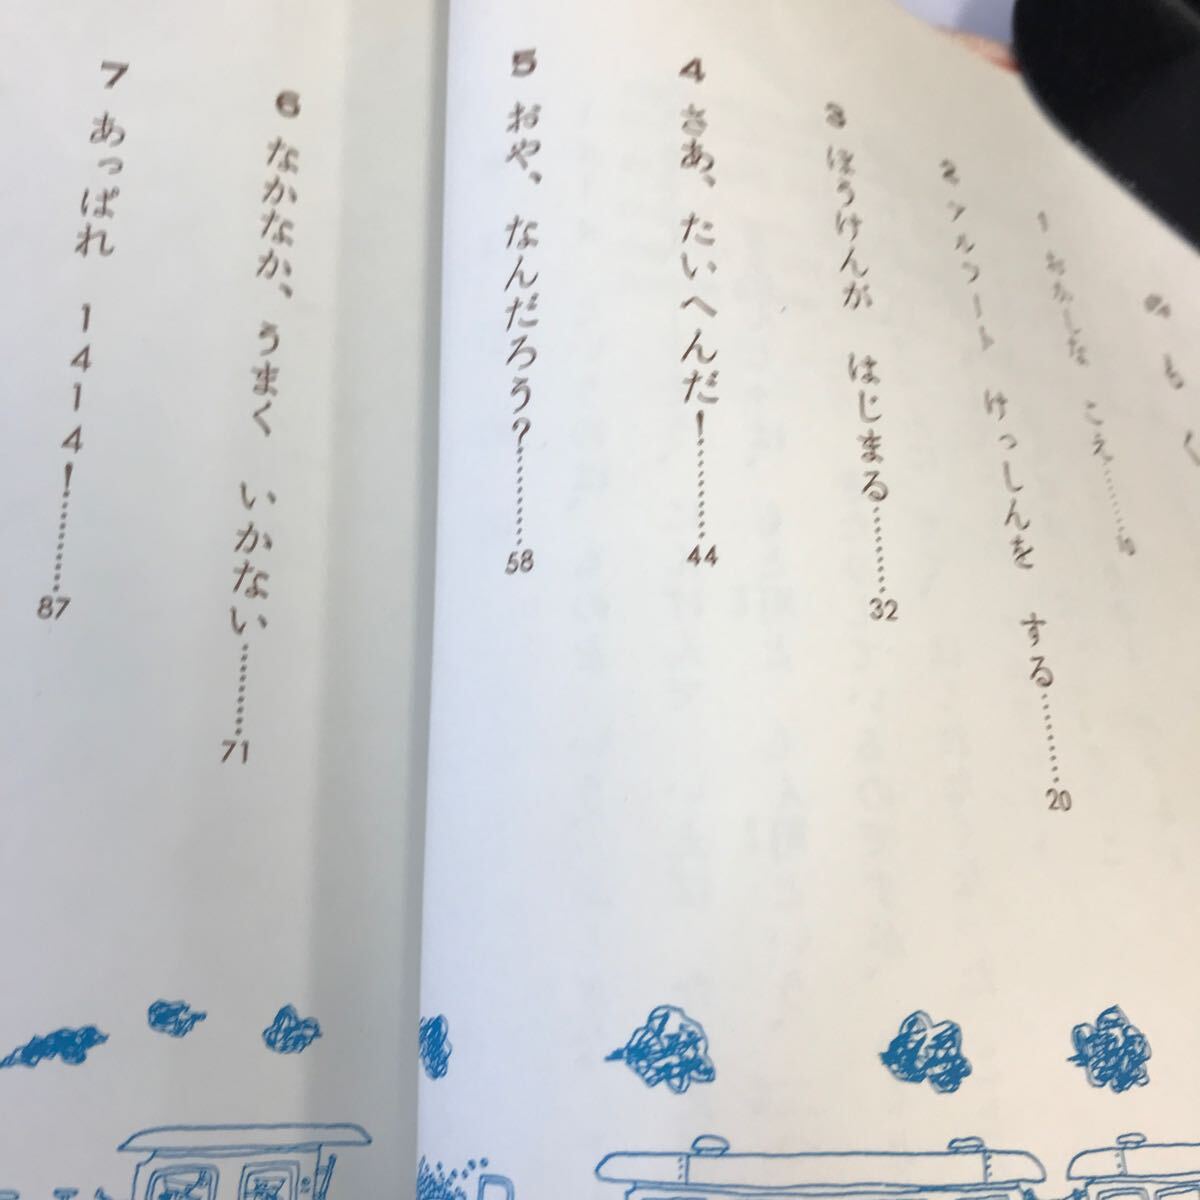 もく
3 ぼうけんが はじまる…………32
けっしんを する…………20
4 さあ、たいへんだ!…………44
5 おや、なんだろう?…………58
6 なかなか、うまく いかない…………71
7 あっぱれ 1414!…………87